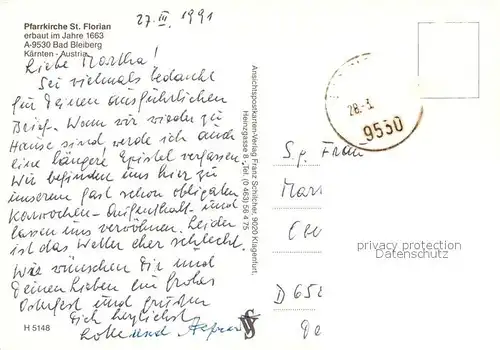 Pfarrkirche St. Florian
erbaut im Jahre 1663
A-9530 Bad Bleiberg
Kärnten - Austria
27. III. 1991
Liebe Martha!
Sei vielmals bedankt
für Deinen ausführlichen
Brief. Wenn wir wieder zu
Hause sind werde ich auch
eine längere Epistel verfassen.
Wir befinden uns hier zu
unserem fast schon obligaten
Karwochen-Aufenthalt und
lassen uns verwöhnen. Leider
ist das Wetter eher schlecht.
Wir wünschen Dir und
Deinen Lieben ein frohes
Osterfest und grüßen
Dich herzlichst
Lotte und
H 5148
Ansichtspostkarten-Verlag Franz Schilcher, 9020 Klagenfurt,
Heinzgasse 8 - Tel. (0 463) 56 4 75
28.-3.
9530
S.g. Frau
Mar
D 658
privacy protection
(C) ANSICHTSKARTEN